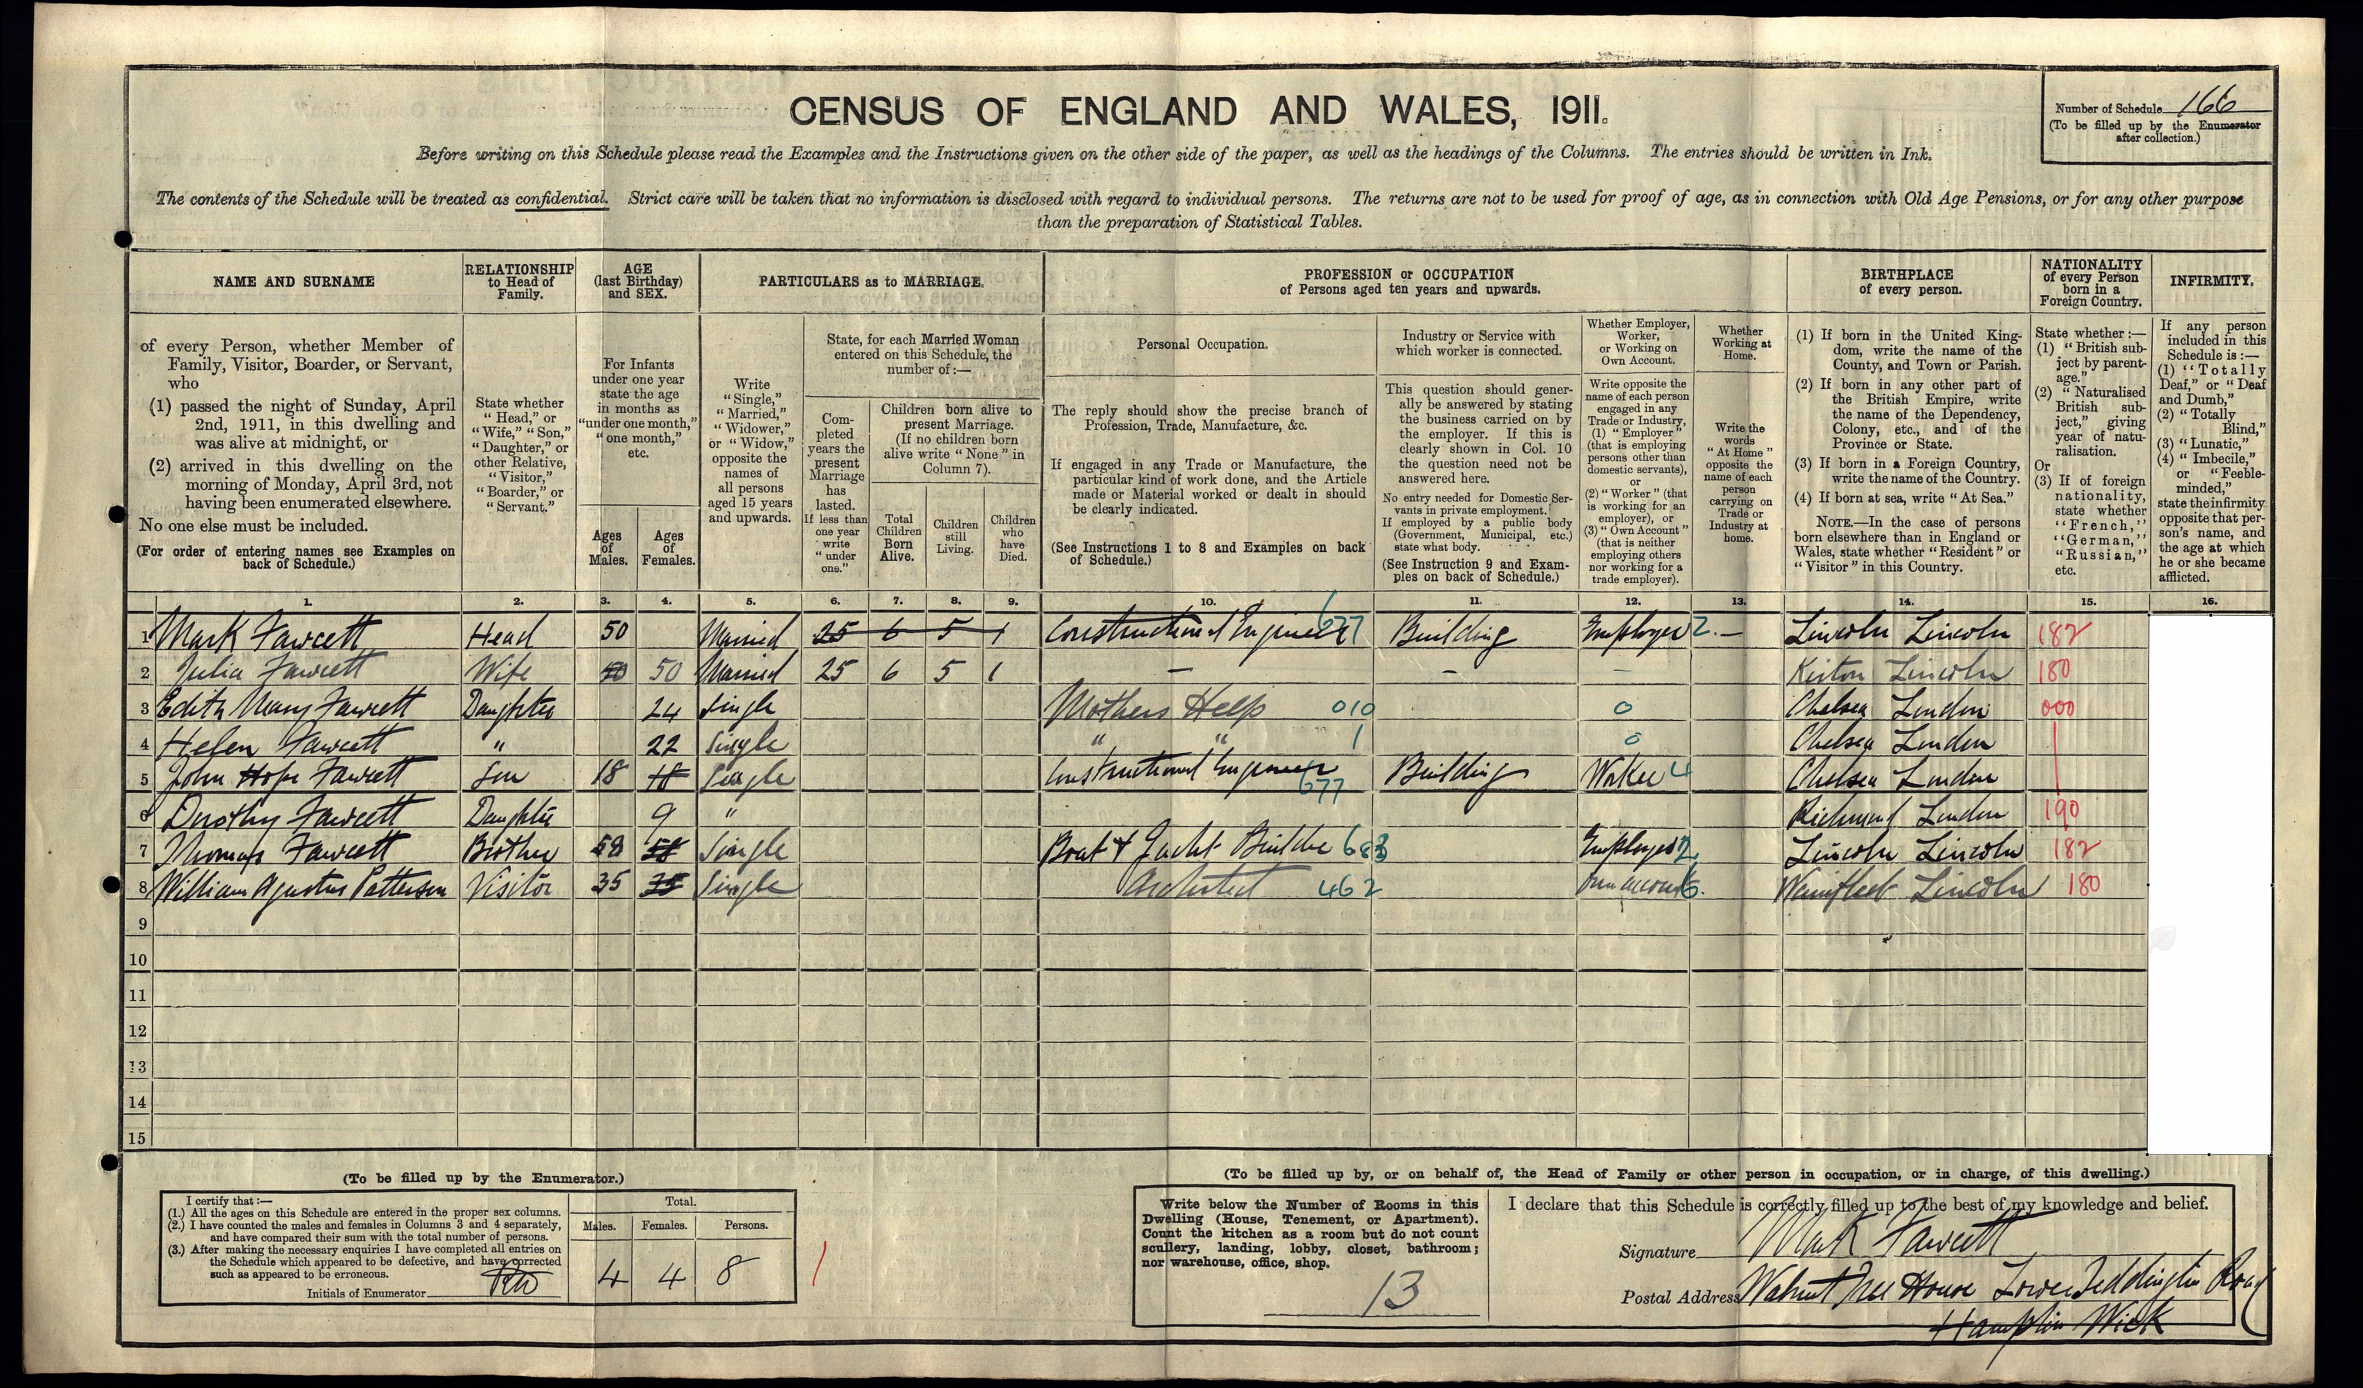 CENSUS OF ENGLAND AND WALES, 1911.
Number of Schedule 166
(To be filled up by the Enumerator
after collection.)
Before writing on this Schedule please read the Examples and the Instructions given on the other side of the paper, as well as the headings of the Columns. The entries should be written in Ink.
The contents of the Schedule will be treated as confidential. Strict care will be taken that no information is disclosed with regard to individual persons. The returns are not to be used for proof of age, as in connection with Old Age Pensions, or for any other purpose
than the preparation of Statistical Tables.
NAME AND SURNAME
of every Person, whether Member of
Family, Visitor, Boarder, or Servant,
who
(1) passed the night of Sunday, April
2nd, 1911, in this dwelling and
was alive at midnight, or
(2) arrived in this dwelling on the
morning of Monday, April 3rd, not
having been enumerated elsewhere.
No one else must be included.
(For order of entering names see Examples on
back of Schedule.)
RELATIONSHIP
to Head of
Family.
State whether
"Head," or
"Wife," "Son,"
"Daughter," or
other Relative,
"Visitor,"
"Boarder," or
"Servant."
AGE
(last Birthday)
and SEX.
For Infants
under one year
state the age
in months as
"under one month,"
"one month,"
etc.
Ages
of
Males.
Ages
of
Females.
PARTICULARS as to MARRIAGE.
Write
"Single,"
"Married,"
"Widower,"
or "Widow,"
opposite the
names of
all persons
aged 15 years
and upwards.
State, for each Married Woman
entered on this Schedule, the
number of:—
Com-
pleted
years the
present
Marriage
has
lasted.
If less than
one year
write
"under
one."
Children born alive to
present Marriage.
(If no children born
alive write "None" in
Column 7).
Total
Children
Born
Alive.
Children
still
Living.
Children
who
have
Died.
PROFESSION or OCCUPATION
of Persons aged ten years and upwards.
Personal Occupation.
The reply should show the precise branch of
Profession, Trade, Manufacture, &c.
If engaged in any Trade or Manufacture, the
particular kind of work done, and the Article
made or Material worked or dealt in should
be clearly indicated.
(See Instructions 1 to 8 and Examples on back
of Schedule.)
Industry or Service with
which worker is connected.
This question should gener-
ally be answered by stating
the business carried on by
the employer. If this is
clearly shown in Col. 10
the question need not be
answered here.
No entry needed for Domestic Ser-
vants in private employment.
If employed by a public body
(Government, Municipal, etc.)
state what body.
(See Instruction 9 and Exam-
ples on back of Schedule.)
Whether Employer,
Worker,
or Working on
Own Account.
Write opposite the
name of each person
engaged in any
Trade or Industry,
(1) "Employer"
(that is employing
persons other than
domestic servants),
or
(2) "Worker" (that
is working for an
employer), or
(3) "Own Account"
(that is neither
employing others
nor working for a
trade employer).
Whether
Working at
Home.
Write the
words
"At Home"
opposite the
name of each
person
carrying on
Trade or
Industry at
home.
BIRTHPLACE
of every person.
(1) If born in the United King-
dom, write the name of the
County, and Town or Parish.
(2) If born in any other part of
the British Empire, write
the name of the Dependency,
Colony, etc., and of the
Province or State.
(3) If born in a Foreign Country,
write the name of the Country.
(4) If born at sea, write "At Sea."
NOTE.—In the case of persons
born elsewhere than in England or
Wales, state whether "Resident" or
"Visitor" in this Country.
NATIONALITY
of every Person
born in a
Foreign Country.
State whether:—
(1) "British sub-
ject by parent-
age."
(2) "Naturalised
British sub-
ject," giving
year of natu-
ralisation.
Or
(3) If of foreign
nationality,
state whether
"French,"
"German,"
"Russian,"
etc.
INFIRMITY.
If any person
included in this
Schedule is:—
(1) "Totally
Deaf," or "Deaf
and Dumb,"
(2) "Totally
Blind,"
(3) "Lunatic,"
(4) "Imbecile,"
or "Feeble-
minded,"
state the infirmity
opposite that per-
son's name, and
the age at which
he or she became
afflicted.
1. 2. 3. 4. 5. 6. 7. 8. 9. 10. 11. 12. 13. 14. 15. 16.
1 Mark Fawcett Head 50 Married 25 6 5 1 Constructional Engineer 677 Building Employer 2. — Lincoln Lincoln 182
2 Julia Fawcett Wife 50 50 Married 25 6 5 1 — — — Kirton Lincoln 180
3 Edith Mary Fawcett Daughter 24 Single Mothers Help 010 0 Chelsea London 000
4 Helen Fawcett " 22 Single " " 1 0 Chelsea London
5 John Hope Fawcett Son 18 18 Single Constructional Engineer 677 Building Worker 4 Chelsea London
6 Dorothy Fawcett Daughter 9 " Richmond London 190
7 Thomas Fawcett Brother 58 58 Single Boat & Yacht Builder 683 Employer 2 Lincoln Lincoln 182
8 William Agustus Patterson Visitor 35 35 Single Architect 462 Own account 6. Wainfleet Lincoln 180
9
10
11
12
13
14
15
(To be filled up by the Enumerator.)
I certify that:—
(1.) All the ages on this Schedule are entered in the proper sex columns.
(2.) I have counted the males and females in Columns 3 and 4 separately,
and have compared their sum with the total number of persons.
(3.) After making the necessary enquiries I have completed all entries on
the Schedule which appeared to be defective, and have corrected
such as appeared to be erroneous.
Initials of Enumerator
Total.
Males. Females. Persons.
4 4 8
(To be filled up by, or on behalf of, the Head of Family or other person in occupation, or in charge, of this dwelling.)
Write below the Number of Rooms in this
Dwelling (House, Tenement, or Apartment).
Count the kitchen as a room but do not count
scullery, landing, lobby, closet, bathroom;
nor warehouse, office, shop.
13
I declare that this Schedule is correctly filled up to the best of my knowledge and belief.
Signature Mark Fawcett
Postal Address Walnut Tree House Lower Teddington Road
Hampton Wick